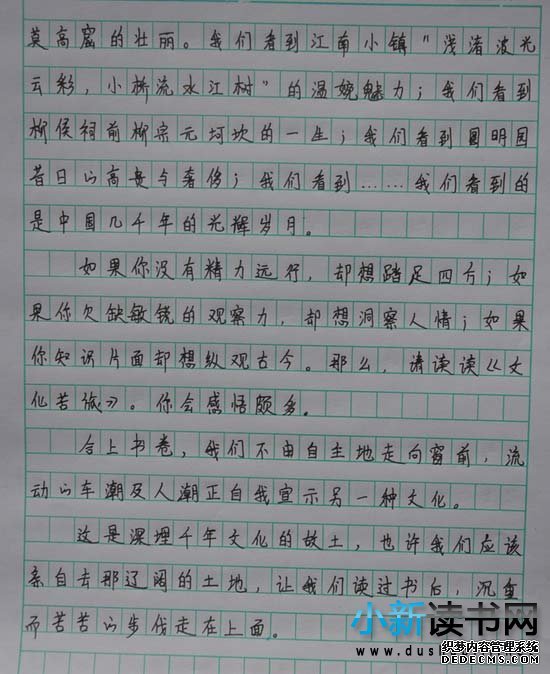 莫高窟的壮丽。我们看到江南小镇“浅渚波光
云彩，小桥流水江树”的温婉魅力；我们看到
柳侯祠前柳宗元坷坎的一生；我们看到圆明园
昔日的高贵与奢侈；我们看到……我们看到的
是中国几千年的光辉岁月。
如果你没有精力远行，却想踏足四方；如
果你欠缺敏锐的观察力，却想洞察人情；如果
你知识片面却想纵观古今。那么，请读读《文
化苦旅》。你会感悟颇多。
合上书卷，我们不由自主地走向窗前，流
动的车潮及人潮正自我宣示另一种文化。
这是深埋千年文化的故土，也许我们应该
亲自去那辽阔的土地，让我们读过书后，沉重
而苦苦的步伐走在上面。
小新读书网
织梦内容管理系统
www.dus
DEDECMS.COM